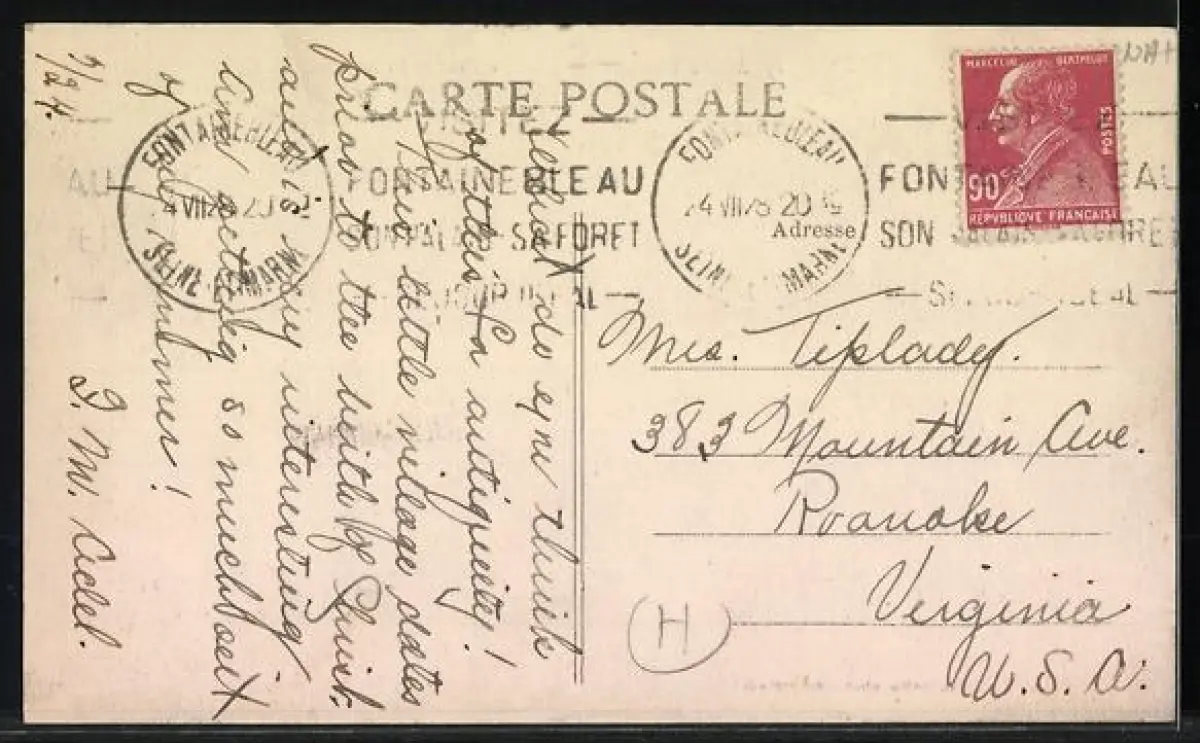 CARTE POSTALE
MARCELIN BERTHELOT
POSTES
90c
REPVBLIQVE FRANÇAISE
FONTAINEBLEAU
24 VII 28 20
SEINE-ET-MARNE
FONTAINEBLEAU
SON PALAIS SA FORET
FONTAINEBLEAU
24 VII 28 20
SEINE-ET-MARNE
FONT
SON PALAIS
Adresse
Mrs. Tiplady.
383 Mountain Ave.
Roanoke
Virginia
U.S.A.
H
What do you think
of this for antiquity!
This little village dates
prior to the birth of Christ
and is very interesting
Am getting so much out
of my summer!
I. M. Adel.
7/24.